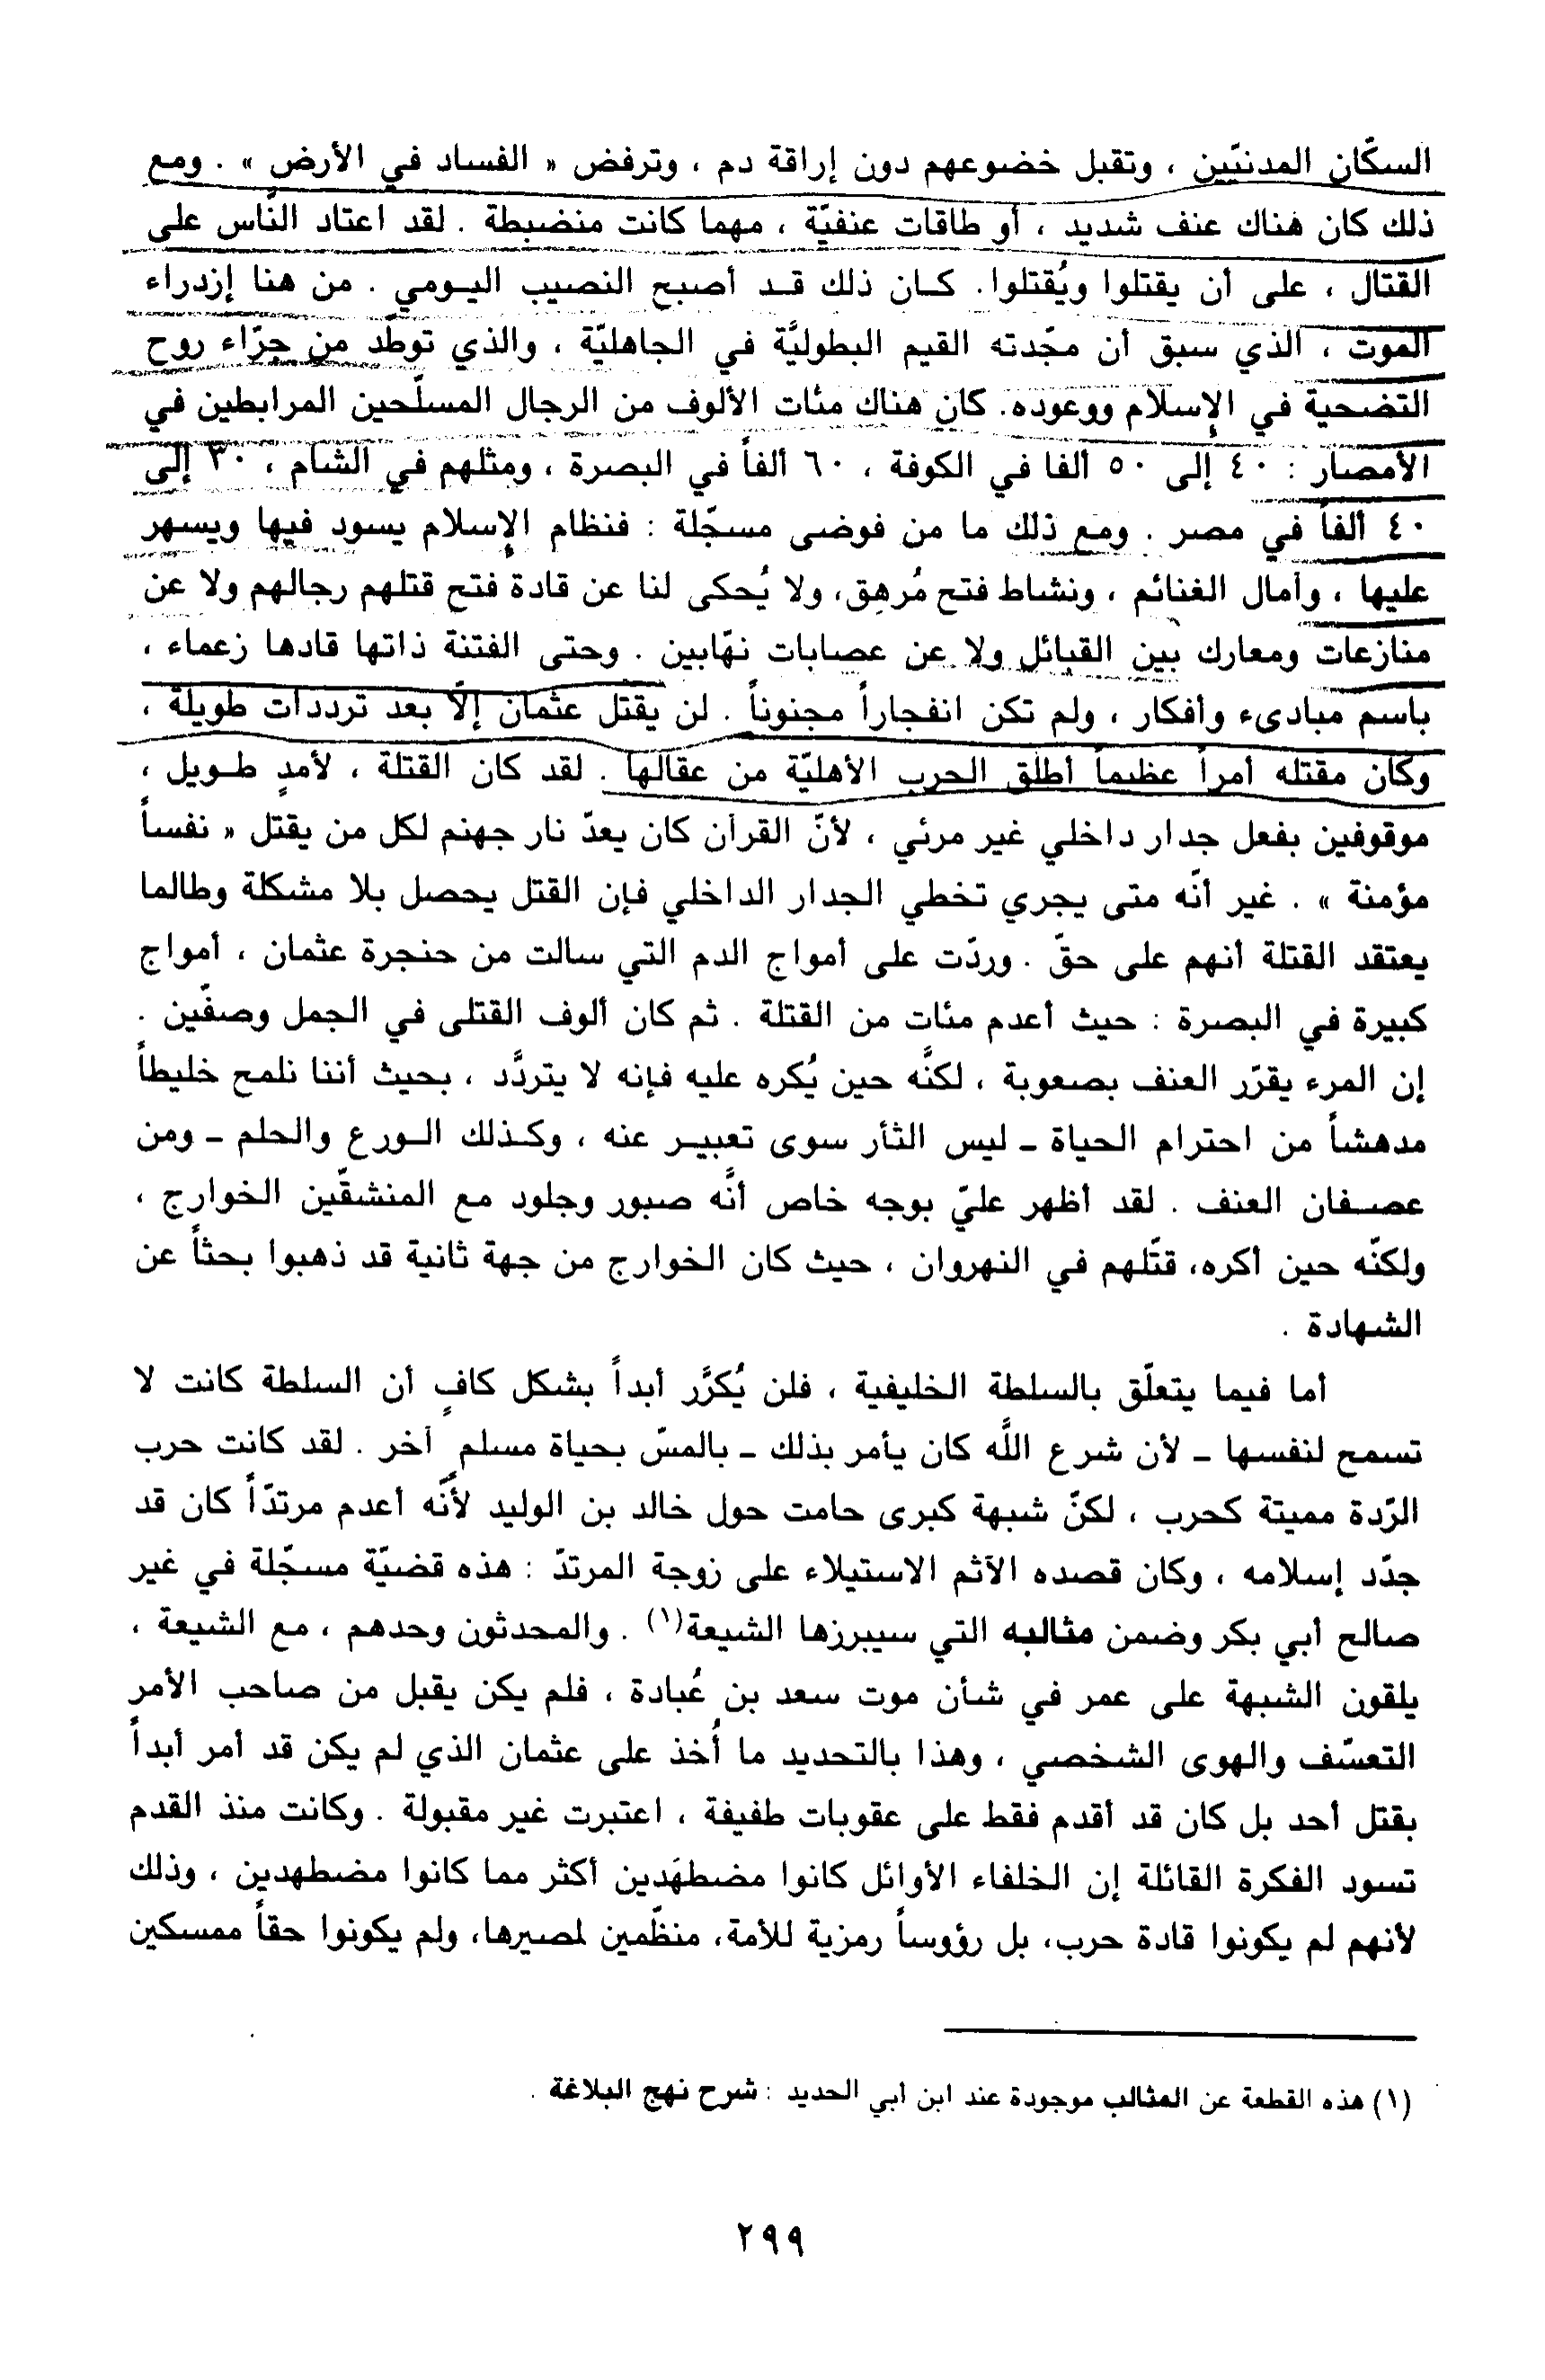 السكّان المدنيّين ، وتقبل خضوعهم دون إراقة دم ، وترفض « الفساد في الأرض » . ومع
ذلك كان هناك عنف شديد ، أو طاقات عنفيّة ، مهما كانت منضبطة . لقد اعتاد النّاس على
القتال ، على أن يقتلوا ويُقتلوا. كـان ذلك قـد أصبح النصيب اليـومي . من هنا إزدراء
الموت ، الذي سبق أن مجّدته القيم البطوليَّة في الجاهليّة ، والذي توطّد من جرّاء روح
التضحية في الإسلام ووعوده. كان هناك مئات الألوف من الرجال المسلّحين المرابطين في
الأمصار : ٤٠ إلى ٥٠ ألفا في الكوفة ، ٦٠ ألفاً في البصرة ، ومثلهم في الشام ، ٣٠ إلى
٤٠ ألفاً في مصر . ومع ذلك ما من فوضى مسجّلة : فنظام الإسلام يسود فيها ويسهر
عليها ، وآمال الغنائم ، ونشاط فتح مُرهِق، ولا يُحكى لنا عن قادة فتح قتلهم رجالهم ولا عن
منازعات ومعارك بين القبائل ولا عن عصابات نهّابين . وحتى الفتنة ذاتها قادها زعماء ،
باسم مبادىء وأفكار ، ولم تكن انفجاراً مجنوناً . لن يقتل عثمان إلّا بعد ترددات طويلة ،
وكان مقتله أمراً عظيماً أطلق الحرب الأهليّة من عقالها . لقد كان القتلة ، لأمدٍ طـويل ،
موقوفين بفعل جدار داخلي غير مرئي ، لأنّ القرآن كان يعدّ نار جهنم لكل من يقتل « نفساً
مؤمنة » . غير أنّه متى يجري تخطي الجدار الداخلي فإن القتل يحصل بلا مشكلة وطالما
يعتقد القتلة أنهم على حقّ . وردّت على أمواج الدم التي سالت من حنجرة عثمان ، أمواج
كبيرة في البصرة : حيث أعدم مئات من القتلة . ثم كان ألوف القتلى في الجمل وصفّين .
إن المرء يقرّر العنف بصعوبة ، لكنَّه حين يُكره عليه فإنه لا يتردَّد ، بحيث أننا نلمح خليطاً
مدهشاً من احترام الحياة ـ ليس الثأر سوى تعبيـر عنه ، وكـذلك الـورع والحلم ـ ومن
عصـفان العنف . لقد أظهر عليّ بوجه خاص أنَّه صبور وجلود مع المنشقّين الخوارج ،
ولكنّه حين أكره، قتّلهم في النهروان ، حيث كان الخوارج من جهة ثانية قد ذهبوا بحثاً عن
الشهادة .
أما فيما يتعلّق بالسلطة الخليفية ، فلن يُكرَّر أبداً بشكل كافٍ أن السلطة كانت لا
تسمح لنفسها ـ لأن شرع اللَّه كان يأمر بذلك ـ بالمسّ بحياة مسلمٍ آخر . لقد كانت حرب
الرّدة مميتة كحرب ، لكنّ شبهة كبرى حامت حول خالد بن الوليد لأنَّه أعدم مرتدّاً كان قد
جدّد إسلامه ، وكان قصده الآثم الاستيلاء على زوجة المرتدّ : هذه قضيّة مسجّلة في غير
صالح أبي بكر وضمن مثالبه التي سيبرزها الشيعة(١) . والمحدثون وحدهم ، مع الشيعة ،
يلقون الشبهة على عمر في شأن موت سعد بن عُبادة ، فلم يكن يقبل من صاحب الأمر
التعسّف والهوى الشخصي ، وهذا بالتحديد ما أُخذ على عثمان الذي لم يكن قد أمر أبداً
بقتل أحد بل كان قد أقدم فقط على عقوبات طفيفة ، اعتبرت غير مقبولة . وكانت منذ القدم
تسود الفكرة القائلة إن الخلفاء الأوائل كانوا مضطهَدين أكثر مما كانوا مضطهدين ، وذلك
لأنهم لم يكونوا قادة حرب، بل رؤوساً رمزية للأمة، منظّمين لمصيرها، ولم يكونوا حقاً ممسكين
(١) هذه القطعة عن المثالب موجودة عند ابن أبي الحديد : شرح نهج البلاغة .
٢٩٩